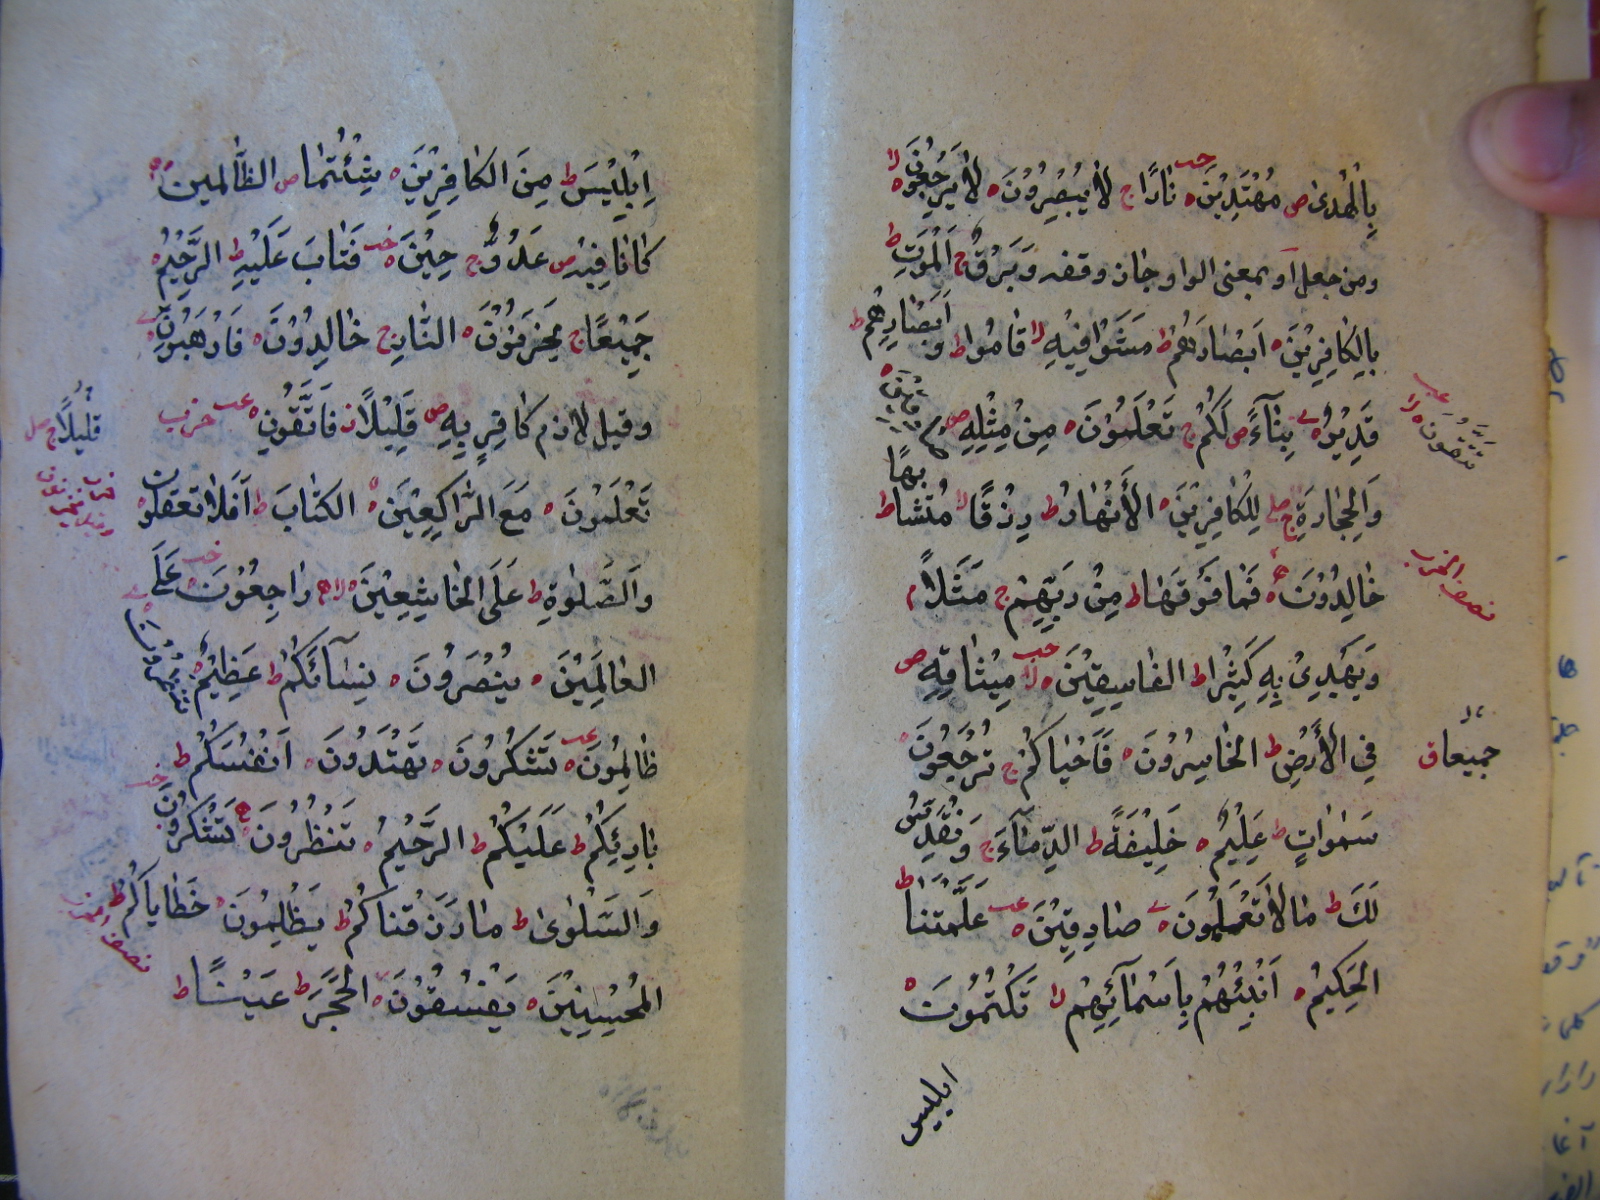 بِالْهُدٰى ص مُهْتَدِيْنَ ه نَارًا ج لاٰ يُبْصِرُوْنَ ه لاٰ يَرْجِعُوْنَ ه لا
ومن جعل اَو بمعنى الواو جاز وقفه وَبَرْقٌ ج الْمَوْتِ ط
بِالكٰافِرِيْنَ ه اَبْصٰارَهُمْ ط مَشَوْا فِيْهِ لا قٰامُوا ط وَاَبْصٰارِهِمْ ط
قَدِيْرٌ ه بِنٰٓاءً ص لَكُمْ ج تَعْلَمُوْنَ ه مِنْ مِثْلِهِ ص
تَتَّقُوْنَ ه لا
وَالْحِجٰارَةُ ج لِلْكٰافِرِيْنَ ه الْأَنْهٰارُ ط رِزْقًا لا مُتَشٰابِهًا ط
خٰالِدُوْنَ ه فَمٰا فَوْقَهٰا ط مِنْ رَبِّهِمْ ج مَثَلاً م
نصف الحزب
وَيَهْدِيْ بِهِ كَثِيْرًا ط الفٰاسِقِيْنَ ه لا مِيْثٰاقِهِ ص
فِي الْأَرْضِ ط الخٰاسِرُوْنَ ه فَاَحْيٰاكُمْ ج تُرْجَعُوْنَ ه
جميعا ق
سَمٰوٰاتٍ ط عَلِيْمٌ ه خَلِيْفَةً ط الدِّمٰٓاءَ ج وَنُقَدِّسُ
لَكَ ط مٰا لاٰ تَعْلَمُوْنَ ه صٰادِقِيْنَ ه عَلَّمْتَنٰا ط
الْحَكِيْمُ ه اَنْبِئْهُمْ بِاَسْمٰٓائِهِمْ لا تَكْتُمُوْنَ ه
ابليس
اِبْلِيْسَ ط مِنَ الكٰافِرِيْنَ ه شِئْتُمٰا ص الظّٰالِمِينَ ه
كٰانٰا فِيْهِ ص عَدُوٌّ ج حِيْنٍ ه فَتٰابَ عَلَيْهِ ط الرَّحِيْمُ ه
جَمِيْعًا ج يَحْزَنُوْنَ ه النّٰارِ ج خٰالِدُوْنَ ه فَارْهَبُوْنِ ه
وقيل لا لازم كٰافِرٍ بِهِ ص قَلِيْلاً ز فَاتَّقُوْنِ ه حزب
قَلِيْلاً ج
تَعْلَمُوْنَ ه مَعَ الرّٰاكِعِيْنَ ه الكِتٰابَ ط اَفَلاٰ تَعْقِلُونَ ه
وَالصَّلٰوةِ ط عَلَى الخٰاشِعِيْنَ ه لا رٰاجِعُوْنَ ه عَلَى
العٰالَمِيْنَ ه يُنْصَرُوْنَ ه نِسٰٓائَكُمْ ط عَظِيْمٌ ه تَنْظُرُوْنَ ه
ظٰالِمُوْنَ ه تَشْكُرُوْنَ ه تَهْتَدُوْنَ ه اَنْفُسَكُمْ ط
بٰارِئِكُمْ ط عَلَيْكُمْ ط الرَّحِيْمُ ه تَنْظُرُوْنَ ه تَشْكُرُوْنَ ه
وَالسَّلْوٰى ط مٰا رَزَقْنٰاكُمْ ط يَظْلِمُوْنَ ه خَطٰايٰاكُمْ ط
نصف الحزب
المُحْسِنِيْنَ ه يَفْسُقُوْنَ ه الْحَجَرَ ط عَيْنًا ط